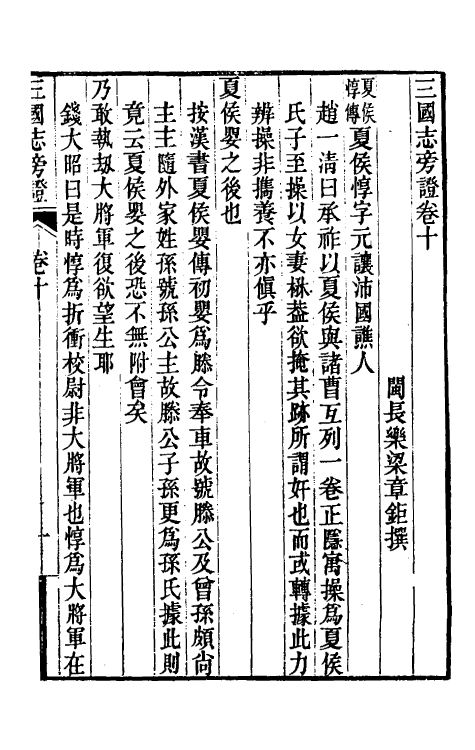 三國志旁證卷十
閩長樂梁章鉅撰
夏侯惇傳夏侯惇字元讓沛國譙人
趙一清曰承祚以夏侯與諸曹互列一卷正隱寓操爲夏侯
氏子至操以女妻楙葢欲掩其跡所謂奸也而或轉據此力
辨操非攜養不亦傎乎
夏侯嬰之後也
按漢書夏侯嬰傳初嬰爲滕令奉車故號滕公及曾孫頗尚
主主隨外家姓孫號孫公主故滕公子孫更爲孫氏據此則
竟云夏侯嬰之後恐不無附會矣
乃敢執劫大將軍復欲望生耶
錢大昭曰是時惇爲折衝校尉非大將軍也惇爲大將軍在
三國志旁證 卷十 一